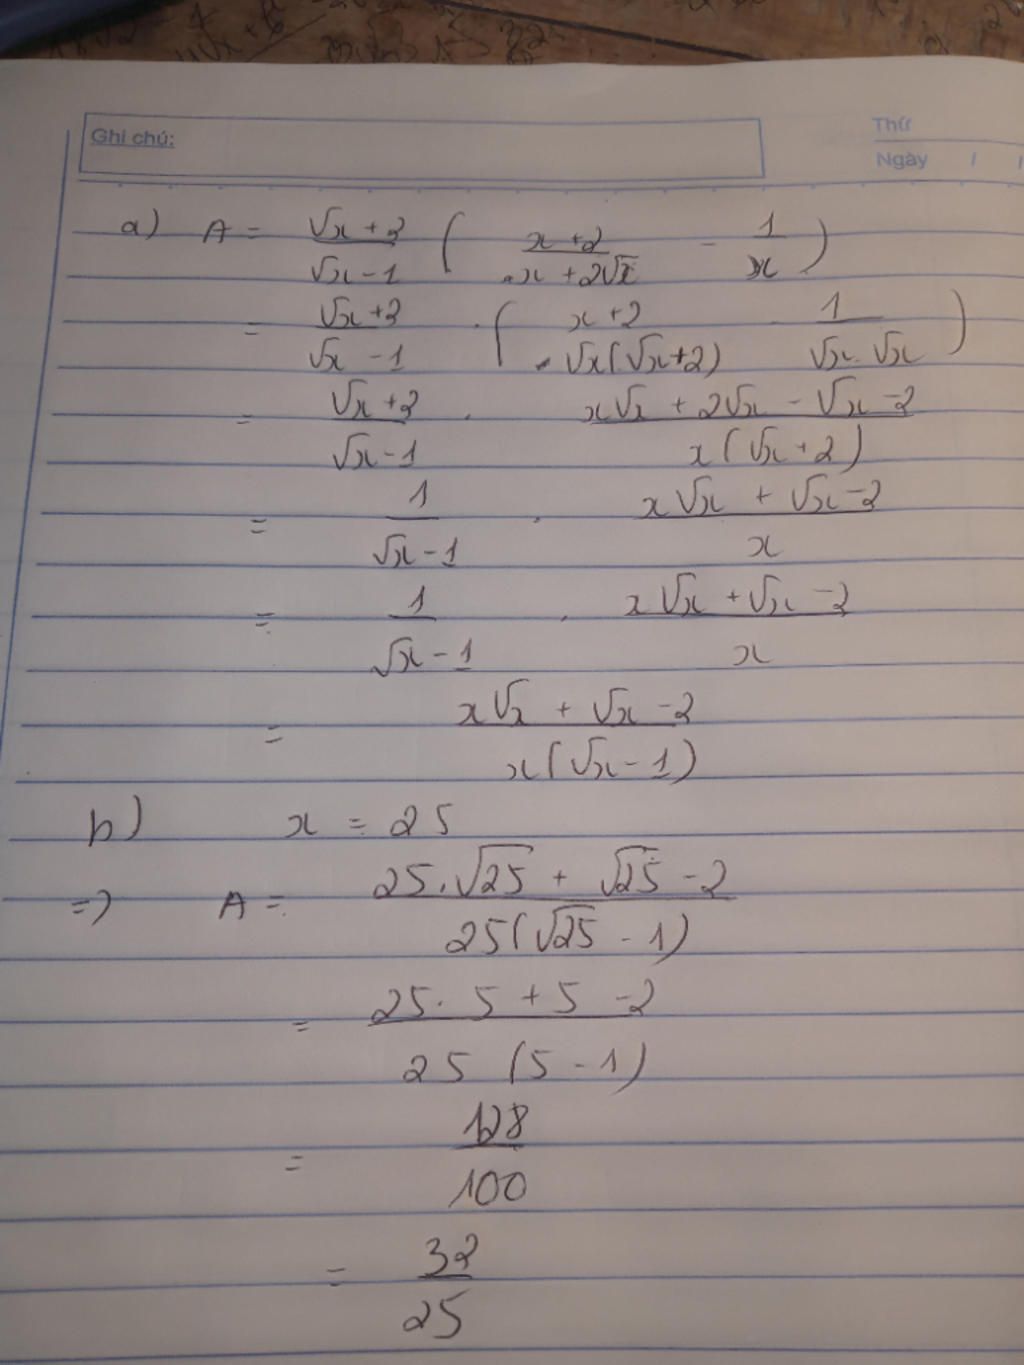 Ghi chú:
Thứ
Ngày / /
a) A = (√x + 2)/(√x - 1) ( (x + 2)/(x + 2√x) - 1/x )
= (√x + 2)/(√x - 1) . ( (x + 2)/(√x(√x + 2)) 1/(√x . √x) )
= (√x + 2)/(√x - 1) . (x√x + 2√x - √x - 2)/(x(√x + 2))
= 1/(√x - 1) . (x√x + √x - 2)/x
= 1/(√x - 1) . (x√x + √x - 2)/x
= (x√x + √x - 2)/(x(√x - 1))
b) x = 25
=> A = (25.√25 + √25 - 2)/(25(√25 - 1))
= (25. 5 + 5 - 2)/(25 (5 - 1))
= 128/100
= 32/25